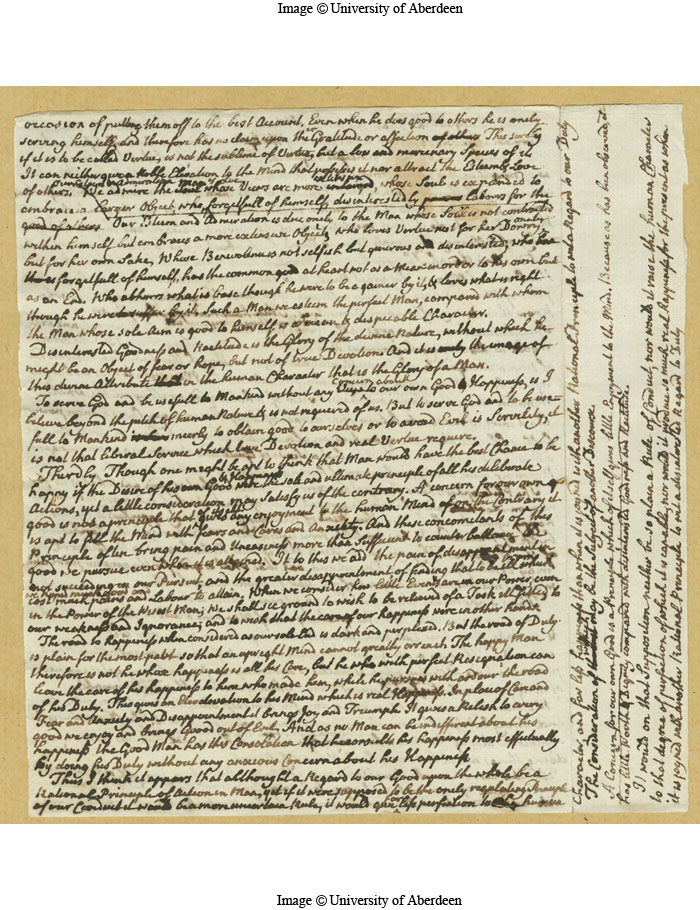 Image © University of Aberdeen
occasion of putting them off to the best Account, Even when he does good to others he is onely
serving himself, and therefore has no claim upon their Gratitude or affection This surely
if it is to be called Virtue, is not the sublime of Virtue, but a low and mercenary Species of it
It can neither give a Noble Elevation to the Mind that possesses it nor attract the Esteem & Love
of others. We admire the whose Views are more enlarged, whose Soul is expanded to
embrace a larger Object, who forgetfull of himself, disinterestedly Labours for the
good of others. Our Esteem and Admiration is due onely to the Man whose Soul is not contracted
within himself but embraces a more extensive Object, who loves Vertue not for her Dowry onely
but for her own Sake, Whose Benevolence is not selfish but generous and disinterested, who
forgetfull of himself, has the common good at heart not as a Means in order to his own but
as an End. Who abhorrs what is base though he were to be a gainer by it, & loves what is right
though he were to suffer by it, Such a Man we esteem the perfect Man, compared with whom
the Man whose sole Aim is good to himself is a mean & despicable Character.
Disinterested Goodness and Rectitude is the Glory of the divine Nature, without which he
might be an Object of fear or hope, but not of true Devotion. And it is the image of
this divine Attribute in the human Character that is the Glory of a Man.
To serve God and be usefull to Mankind without any Concern about our own Good & Happiness, is I
beleive beyond the pitch of human Nature & is not required of us. But to serve God and to be use-
full to Mankind merely to obtain good to ourselves or to avoid Evil is Servility, it
is not that liberal Service which true Devotion and real Vertue require.
Thirdly Though one might be apt to think that Man would have the best Chance to be
happy if the Desire of his own Good & Happiness were the sole and ultimate principle of all his deliberate
Actions, yet a little consideration may satisfy us of the contrary. A concern for our own
good is not a principle that of itself gives any enjoyment to the human Mind on the Contrary it
is apt to fill the Mind with fears and Cares and Anxiety. And these concomitants of this
Principle often bring pain and Uneasiness more than sufficient to counterballance the
good we pursue even when it is attained. If to this we add the pain of disappointment in
not succeeding in our Pursuit, and the greater disappointment of finding that to be Ill which
cost much pains and Labour to attain, When we consider how little Events are in our Power, even
in the Power of the Wisest Man; We shall see ground to wish to be relieved of a Task ill suited to
our weakness and Ignorance; and to wish that the care of our happiness were in other hands.
The road to happiness when considered as our sole End is dark and perplexed. But the road of Duty
is plain for the most part so that an upright Mind cannot greatly err in it. The happy Man
therefore is not he whose happiness is all his Care, but he who with perfect Resignation can
leave the care of his happiness to him who made him, while he pursues with ardour the road
of his Duty. This gives an Elevation to his Mind which is real Happiness. In place of Care and
Fear and Anxiety and Disappointment it brings Joy and Triumph. It gives a Relish to every
good we enjoy and brings Good out of Evil, And as no Man can be indifferent about his
happiness the Good Man has this Consolation that he consults his happiness most effectually
by doing his Duty without any anxious Concern about his Happiness
Thus I think it appears that although a Regard to our Good upon the whole be a
Rational Principle of Action in Man, yet if it were supposed to be the onely regulating Principle
of our Conduct it would be a more uncertain Rule, it would give less perfection to the human
Character, and far less happiness than when it is joyned with another Rational Principle to wit a Regard to our Duty
The Consideration of must be the Subject of another Discourse.
A Concern for our own Good is a Principle which of it self gives little Enjoyment to the Mind, Because as has been observed, it
has little Worth & Dignity compared with disinterested Goodness and Rectitude.
It would on that Supposition neither be so plain a Rule of Conduct, nor would it raise the human Character
to that degree of perfection of which it is capable, nor would it produce so much real happiness for the present as when
it is joyned with another Rational Principle to wit a disinterested Regard to Duty
Image © University of Aberdeen